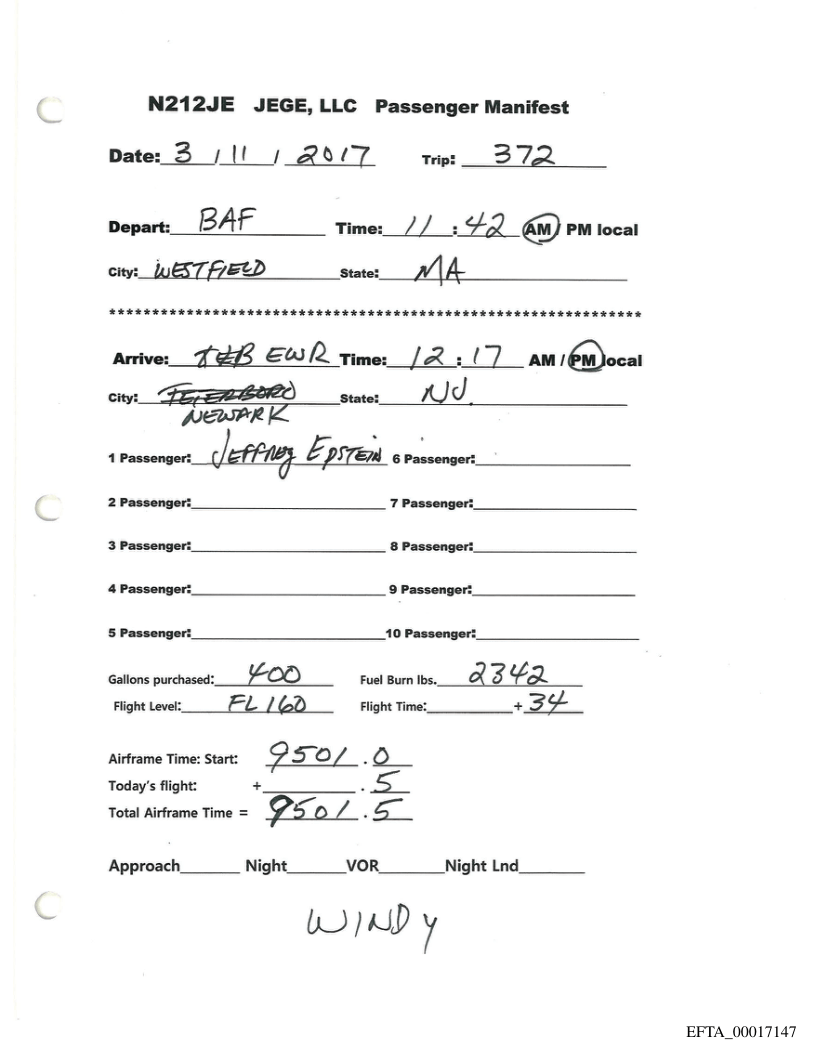 N212JE JEGE, LLC Passenger Manifest
Date: 3 / 11 / 2017 Trip: 372
Depart: BAF Time: 11 : 42 AM / PM local
City: WESTFIELD State: MA
*****************************************************************
Arrive: TEB EWR Time: 12 : 17 AM / PM local
City: TETERBORO State: NJ
NEWARK
1 Passenger: JEFFREY EPSTEIN 6 Passenger:
2 Passenger: 7 Passenger:
3 Passenger: 8 Passenger:
4 Passenger: 9 Passenger:
5 Passenger: 10 Passenger:
Gallons purchased: 400 Fuel Burn lbs. 2342
Flight Level: FL 160 Flight Time: + 34
Airframe Time: Start: 9501 . 0
Today's flight: + . 5
Total Airframe Time = 9501 . 5
Approach Night VOR Night Lnd
WINDY
EFTA_00017147